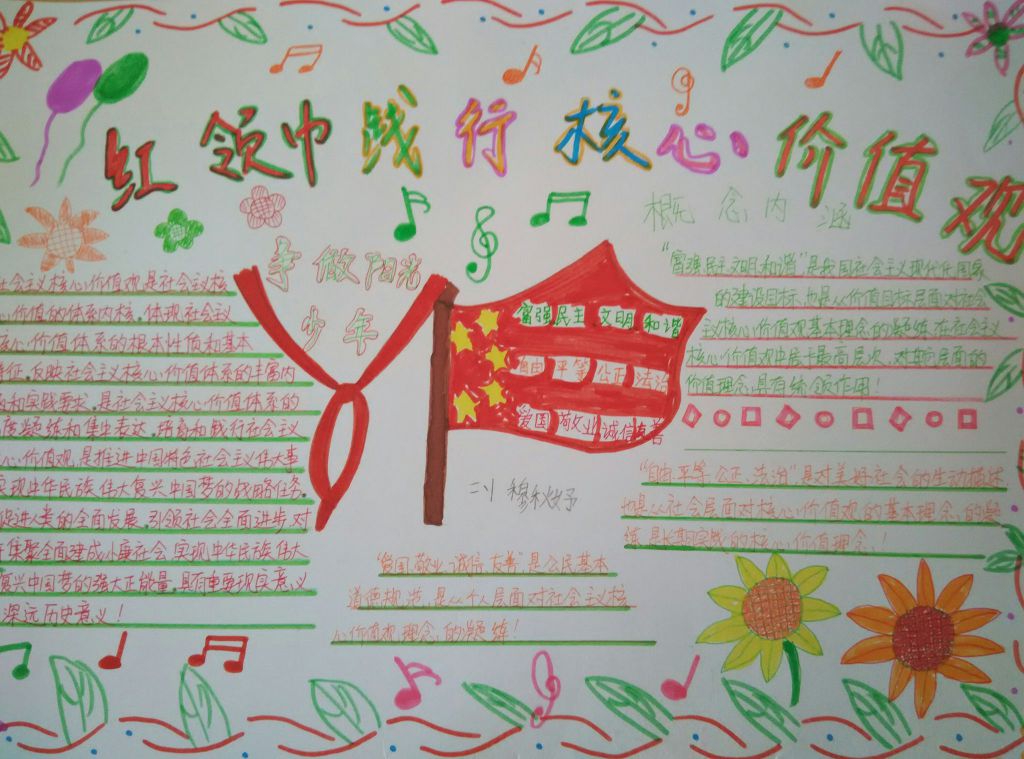 红领巾践行核心价值观
争做阳光
少年
社会主义核心价值观是社会主义核
心价值的体系内核,体现社会主义
核心价值体系的根本性质和基本
特征,反映社会主义核心价值体系的丰富内
和实践要求,是社会主义核心价值体系的
凝练和集中表达,培育和践行社会主义
心价值观,是推进中国特色社会主义伟大事
实现中华民族伟大复兴中国梦的战略任务,
促进人类的全面发展,引领社会全面进步,对
集聚全面建成小康社会实现中华民族伟大
复兴中国梦的强大正能量,具有重要现实意义
深远历史意义!
富强 民主 文明 和谐
自由 平等 公正 法治
爱国 敬业 诚信 友善
概念内涵
“富强民主文明和谐”是我国社会主义现代化国家
的建设目标,也是从价值目标层面对社会
主义核心价值观基本理念的凝练,在社会主义
核心价值观中居于最高层次,对其他层面的
价值理念具有统领作用!
“自由、平等、公正、法治”是对美好社会的生动描述
也是从社会层面对核心价值观的基本理念的凝
练,是长期实践的核心价值理念!
穆秋妤
“爱国、敬业、诚信、友善”,是公民基本
道德规范,是从个人层面对社会主义核
心价值观理念的凝练!